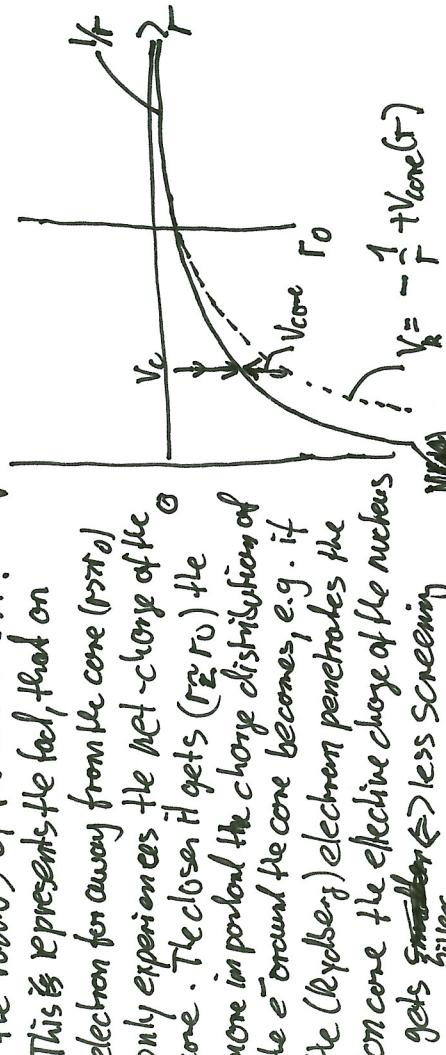 This is represents the fact, that on
electron far away from the core (r>r0)
only experiences the net-charge of the
core. The closer it gets (r≈r0) the
more important the charge distribution of
the e⁻ around the core becomes, e.g. if
the (Rydberg) electron penetrates the
ion core the effective charge of the nucleus
gets less screening
1/r
r
Vc
Vcore
r0
VR = -1/r + Vcore(r)